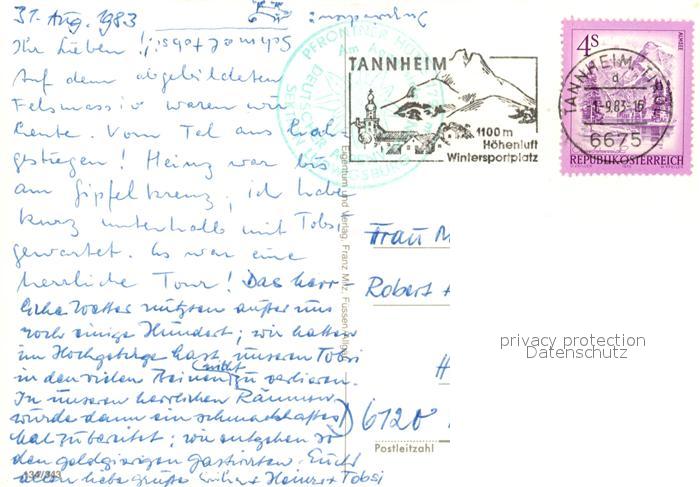 31. Aug. 1983
Ihr Lieben!
Auf dem abgebildeten
Felsmassiv waren wir
heute. Vom Tal aus hoch-
gestiegen! Heinz war bis
am Gipfelkreuz, ich habe
kurz unterhalb mit Tobsi
gewartet. Es war eine
herrliche Tour! Das herr-
liche Wetter nützten außer uns
noch einige Hundert; wir hatten
im Hochgebirge Last, unseren Tobsi
in den vielen Beinen nicht zu verlieren.
In unseren herrlichen Räumen
würde dann ein schmackhaftes
Mal zubereitet; wir entgehen so
den goldgierigen Gastwirten. Euch
allen liebe Grüße + Heinz + Tobsi
134/343
PFRONTNER HÜTTE
Am Aggenstein
DEUTSCHER ALPENVEREIN
TANNHEIM
1100 m
Höhenluft
Wintersportplatz
4 S
ALMSEE
TANNHEIM, TIROL
a
1.-9.83-16
6675
REPUBLIK ÖSTERREICH
Eigentum und Verlag, Franz Milz, Füssen Allgäu
Frau M
Robert +
H
6120
Postleitzahl
privacy protection
Datenschutz